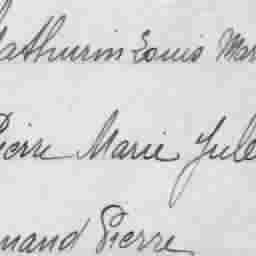 Mathurin Louis Mar
Pierre Marie Jule
mand Pierre